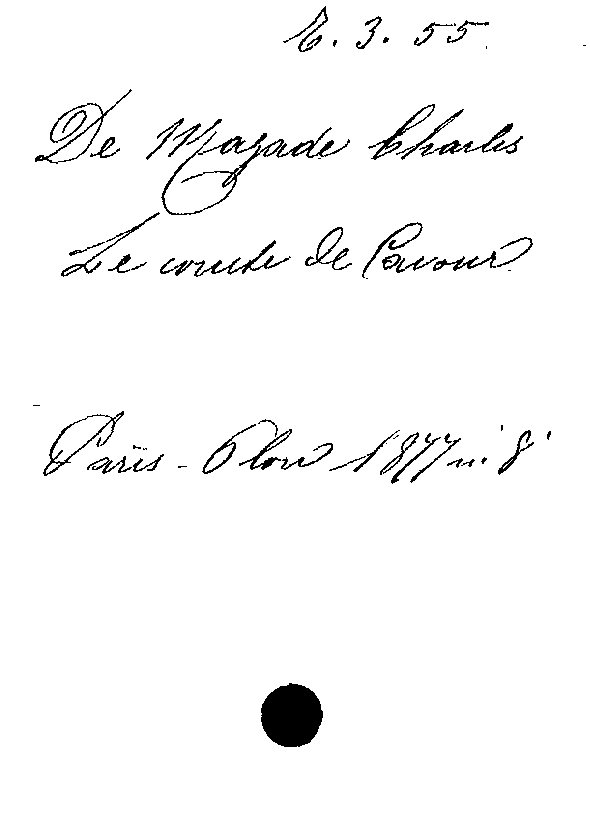 E. 3. 55
De Mazade Charles
Le comte de Cavour
Paris - Plon 1877 in 8°